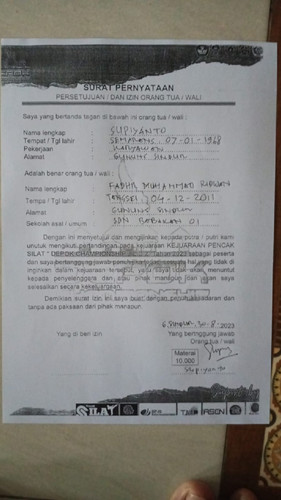 SURAT PERNYATAAN
PERSETUJUAN / DAN IZIN ORANG TUA / WALI
Saya yang bertanda tagan di bawah ini orang tua / wali :
Nama lengkap : SUPIYANTO
Tempat / Tgl lahir : SEMARANG, 07-01-1968
Pekerjaan : KARYAWAN
Alamat : GUNUNG SINDUR
Adalah benar orang tua / wali :
Nama lengkap : FADHIL MUHAMMAD
Tempa / Tgl lahir : 04-12-2011
Alamat : GUNUNG SINDUR
Sekolah asal / umum : SDN BABAKAN 01
Dengan ini menyetujui dan mengijinkan kepada putra / putri kami
untunk mengikuti pertandingan pada kejuaraan KEJUARAAN PENCAK
SILAT " DEPOK CHAMPIONSHIP 2" tahun 2023 sebagai peserta
dan saya bertanggung jawab penuh apabila hal yang tidak di
inginkan dalam kejuaraan tersebut, saya tidak akan menuntut
kepada penyelenggara dan atau pihak manapun dan akan saya
selesaikan secara kekeluargaan.
Demikian surat izin ini saya buat dengan penuh kesadaran dan
tanpa ada paksaan dari pihak manapun.
G. Sindur, 30-8-2023
Yang di beri izin
Yang beringgung jawab
Orang tua / wali
Materai
10.000
Supiyanto
SILAT